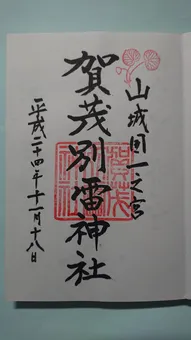 山城国一之宮
賀茂別雷神社
平成二十四年十一月十八日